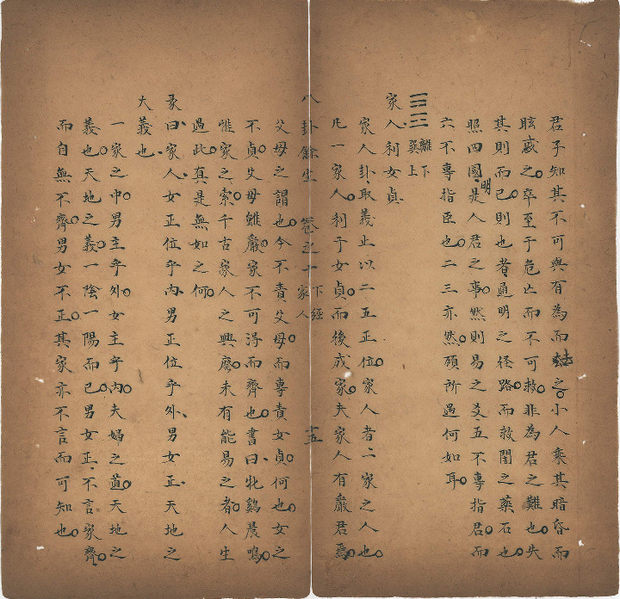 君子知其不可與有為而之小人乘其暗昏而
眩惑之卒至于危亡而不可救非為君之難也失
其則而已則也者通明之徑路而救闇之藥石也
照四國明是人君之事然則易之爻五不專指君而
六不專指臣也二三亦然顧所遇何如耳
離下
巽上
家人利女貞
家人卦取義止以二五正位家人者一家之人也
凡一家人利于女貞而後成家夫家人有嚴君焉
八卦餘生 卷之十 下經 家人 十五
父母之謂也今不責父母而專責女貞何也女之
不貞父母雖嚴家不可得而齊也書曰牝鷄晨鳴
惟家之索千古家人之興廢未有能易之者人生
過此真是無如之何
彖曰家人女正位乎內男正位乎外男女正天地之
大義也
一家之中男主乎外女主乎內夫婦之道天地之
義也天地之義一陰一陽而已男女正不言家齊
而自無不齊男女不正其家亦不言而可知也